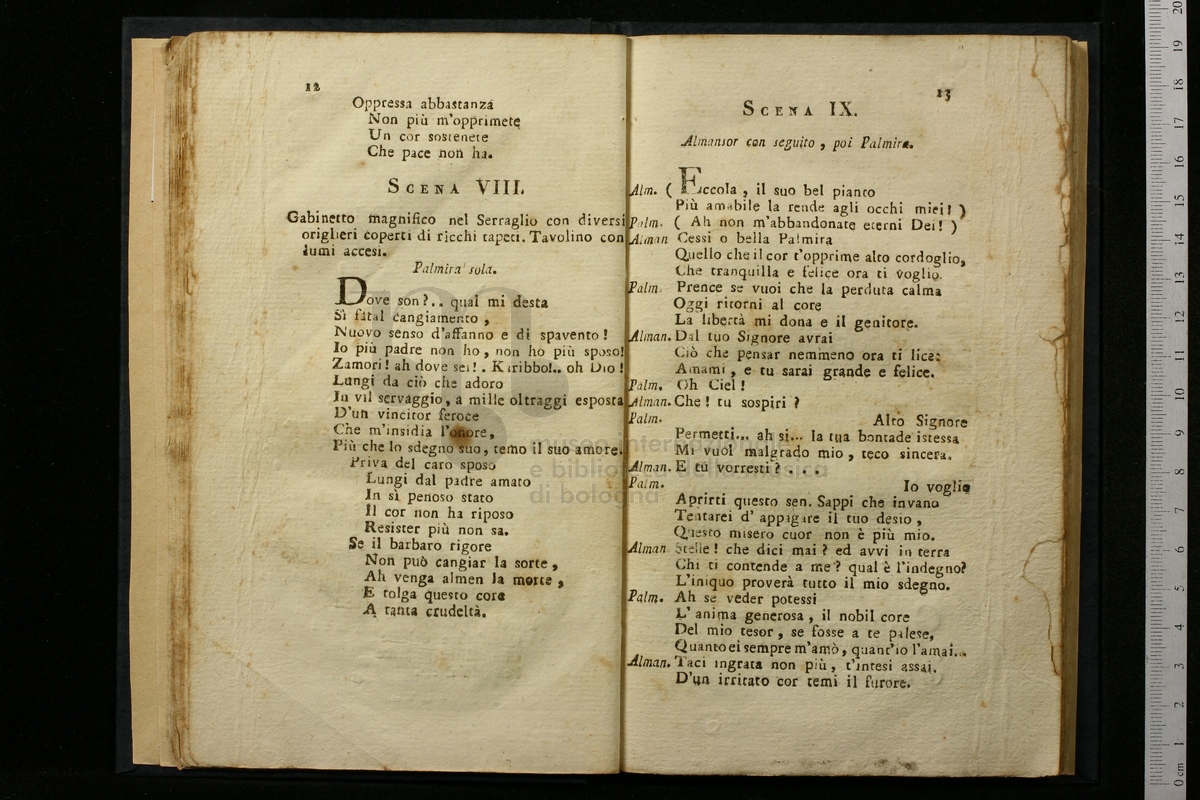 12
Oppressa abbastanza
Non più m'opprimete
Un cor sostenete
Che pace non ha.
SCENA VIII.
Gabinetto magnifico nel Serraglio con diversi
origlieri coperti di ricchi tapeti. Tavolino con
lumi accesi.
Palmira sola.
Dove son?.. qual mi desta
Sì fatal cangiamento,
Nuovo senso d'affanno e di spavento!
Io più padre non ho, non ho più sposo!
Zamori! ah dove sei!. Kiribbo!.. oh Dio!
Lungi da ciò che adoro
In vil servaggio, a mille oltraggi esposta
D'un vincitor feroce
Che m'insidia l'onore,
Più che lo sdegno suo, temo il suo amore.
Priva del caro sposo
Lungi dal padre amato
In sì penoso stato
Il cor non ha riposo
Resister più non sa.
Se il barbaro rigore
Non può cangiar la sorte,
Ah venga almen la morte,
E tolga questo core
A tanta crudeltà.
13
SCENA IX.
Almansor con seguito, poi Palmira.
Alm. (Eccola, il suo bel pianto
Più amabile la rende agli occhi miei!)
Palm. (Ah non m'abbandonate eterni Dei!)
Alman Cessi o bella Palmira
Quello che il cor t'opprime alto cordoglio,
Che tranquilla e felice ora ti voglio.
Palm. Prence se vuoi che la perduta calma
Oggi ritorni al core
La libertà mi dona e il genitore.
Alman. Dal tuo Signore avrai
Ciò che pensar nemmeno ora ti lice:
Amami, e tu sarai grande e felice.
Palm. Oh Ciel!
Alman. Che! tu sospiri?
Palm. Alto Signore
Permetti... ah si... la tua bontade istessa
Mi vuol malgrado mio, teco sincera.
Alman. E tu vorresti?...
Palm. Io voglio
Aprirti questo sen. Sappi che invano
Tentarei d'appagare il tuo desio,
Questo misero cuor non è più mio.
Alman. Stelle! che dici mai? ed avvi in terra
Chi ti contende a me? qual è l'indegno?
L'iniquo proverà tutto il mio sdegno.
Palm. Ah se veder potessi
L'anima generosa, il nobil core
Del mio tesor, se fosse a te palese,
Quanto ei sempre m'amò, quant'io l'amai...
Alman. Taci ingrata non più, t'intesi assai.
D'un irritato cor temi il furore.
museo internazionale
e biblioteca della musica
di bologna
0 cm 1 2 3 4 5 6 7 8 9 10 11 12 13 14 15 16 17 18 19 20